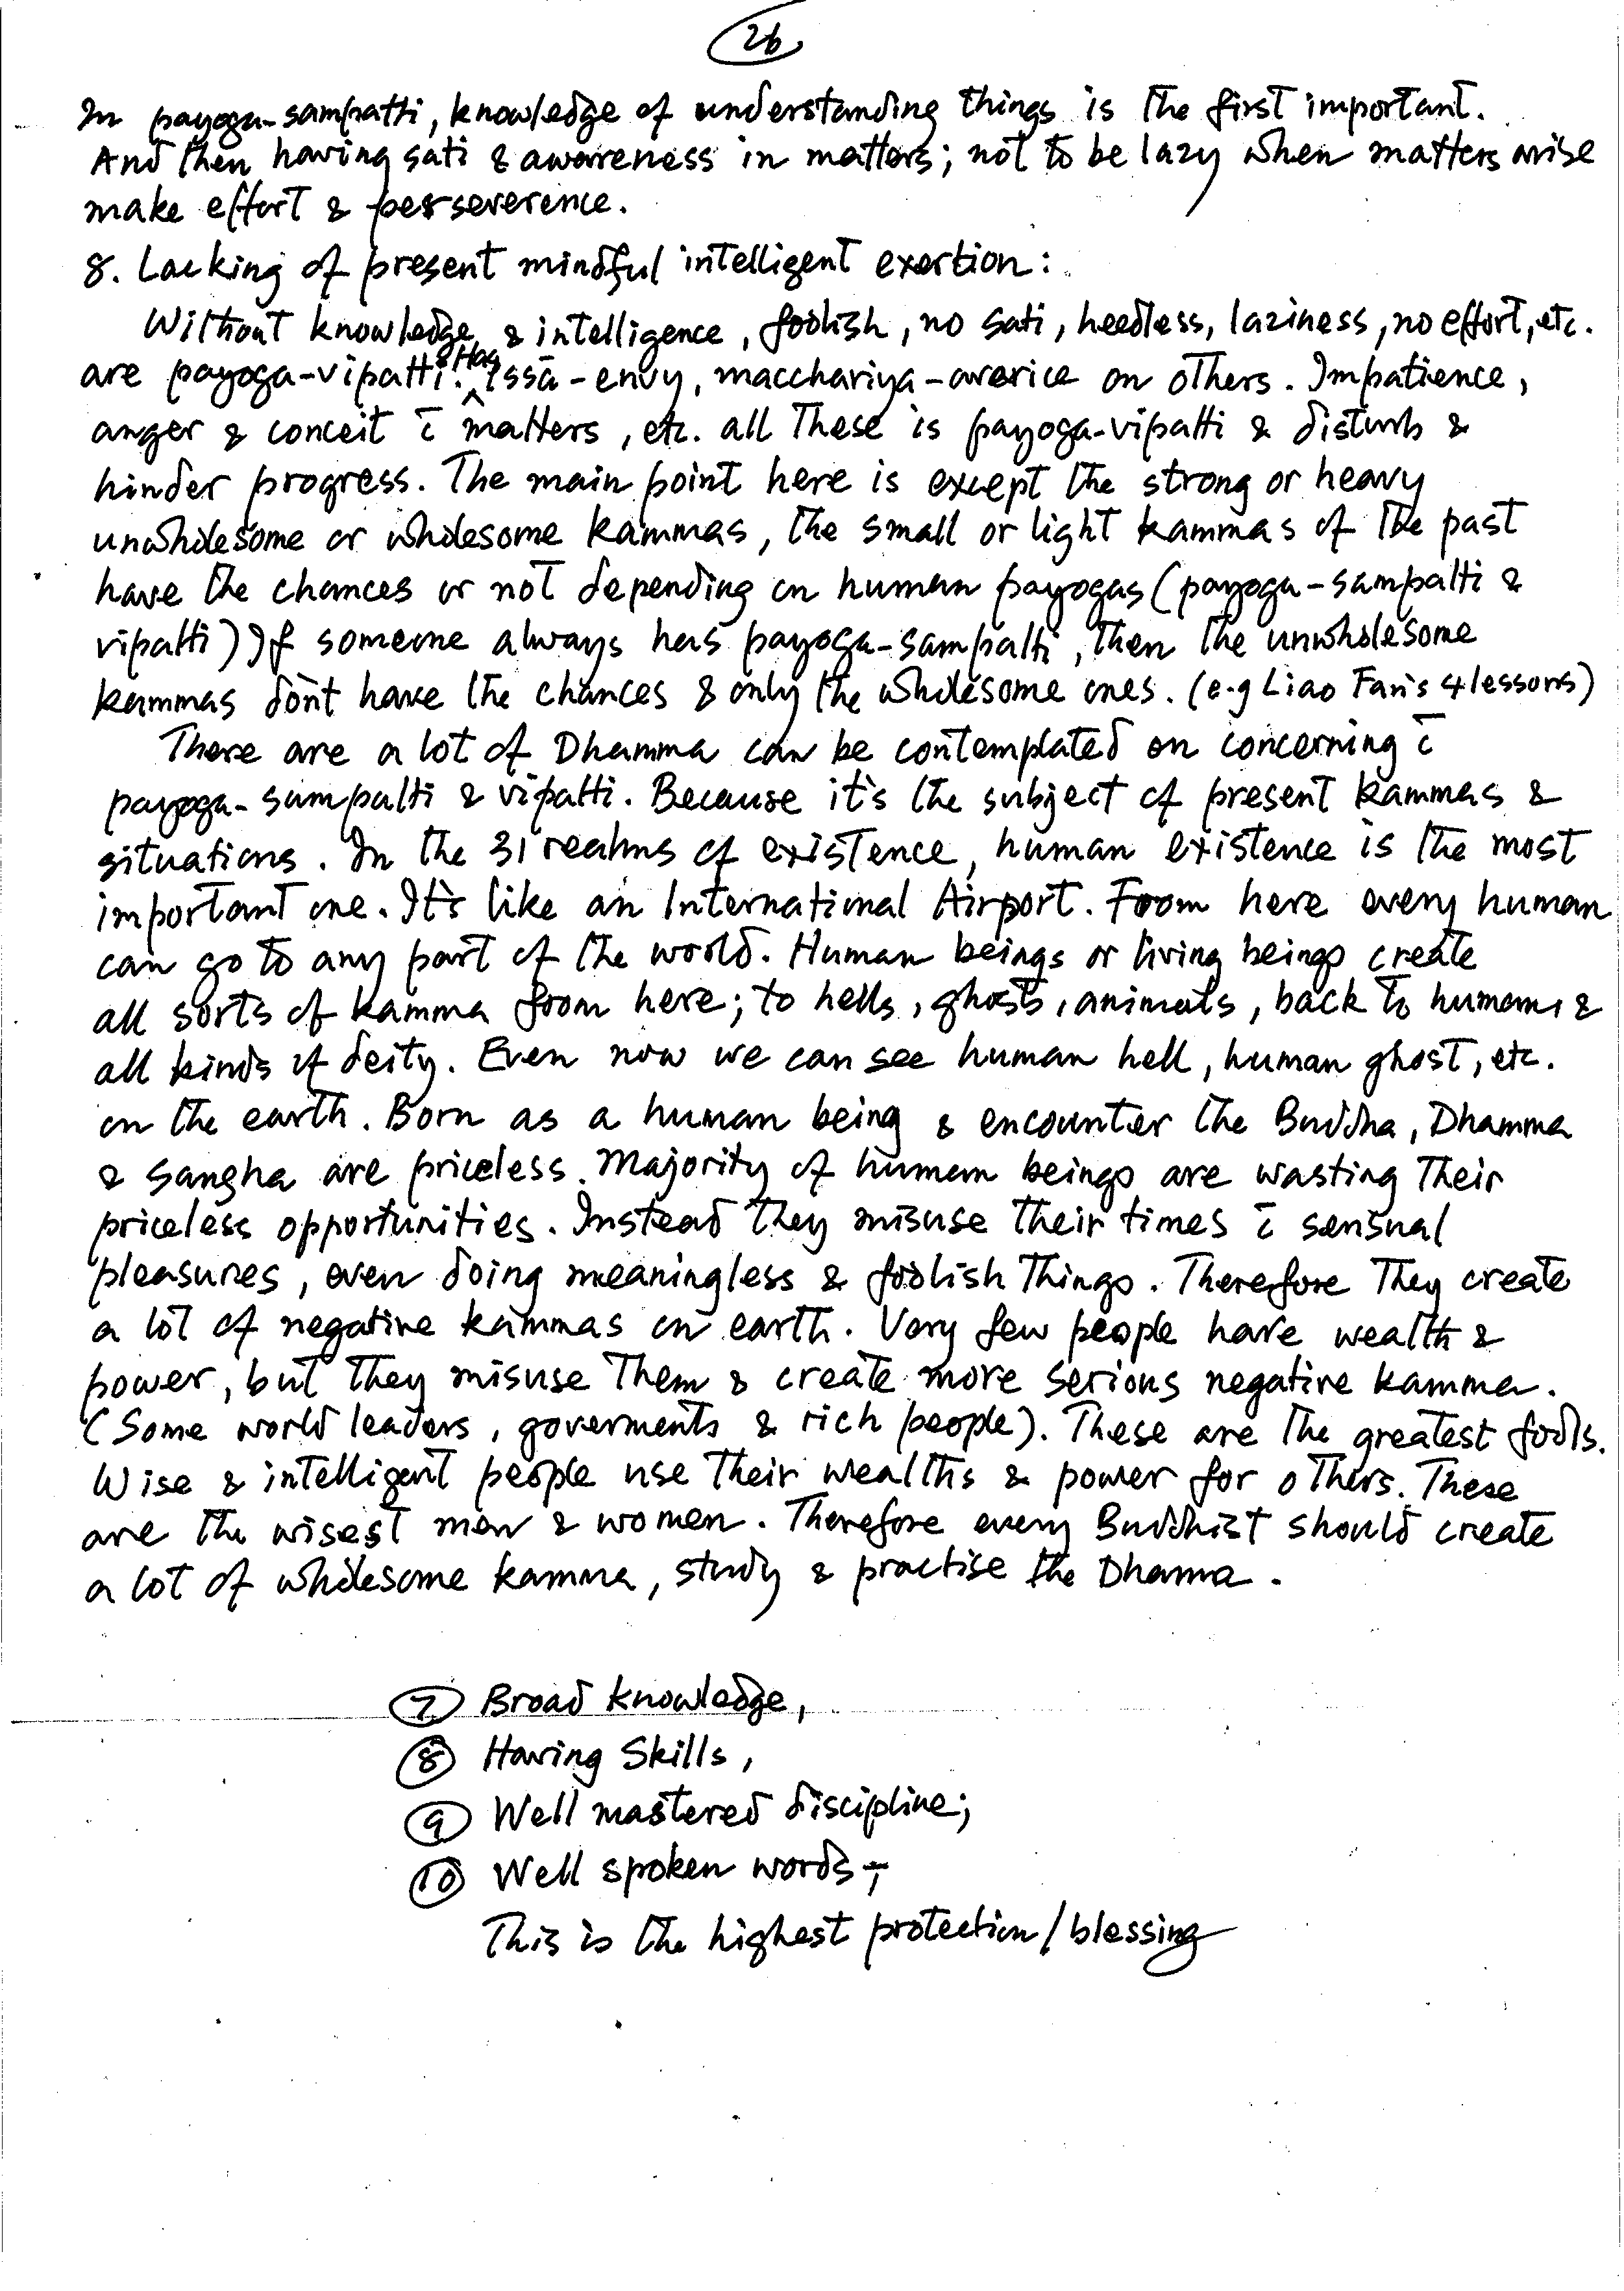 26
In payoga-sampatti, knowledge of understanding things is the first important.
And then having sati & awareness in matters; not to be lazy when matters arise
make effort & perseverence.
8. Lacking of present mindful intelligent exertion:
Without knowledge & intelligence, foolish, no sati, heedless, laziness, no effort, etc.
are payoga-vipatti. & Has issā-envy, macchariya-avarice on others. Impatience,
anger & conceit c̄ matters, etc. all these is payoga-vipatti & disturb &
hinder progress. The main point here is except the strong or heavy
unwholesome or wholesome kammas, the small or light kammas of the past
have the chances or not depending on human payogas (payoga-sampatti &
vipatti) If someone always has payoga-sampatti, then the unwholesome
kammas don't have the chances & only the wholesome ones. (e.g Liao Fan's 4 lessons)
There are a lot of Dhamma can be contemplated on concerning c̄
payoga-sampatti & vipatti. Because it's the subject of present kammas &
situations. In the 31 realms of existence, human existence is the most
important one. It's like an International Airport. From here every human
can go to any part of the world. Human beings or living beings create
all sorts of kamma from here; to hells, ghosts, animals, back to humans &
all kinds of deity. Even now we can see human hell, human ghost, etc.
on the earth. Born as a human being & encounter the Buddha, Dhamma
& Sangha are priceless. Majority of human beings are wasting their
priceless opportunities. Instead they misuse their times c̄ sensual
pleasures, even doing meaningless & foolish things. Therefore they create
a lot of negative kammas on earth. Very few people have wealth &
power, but they misuse them & create more serious negative kamma.
(Some world leaders, goverments & rich people). These are the greatest fools.
Wise & intelligent people use their wealths & power for others. These
are the wisest men & women. Therefore every Buddhist should create
a lot of wholesome kamma, study & practise the Dhamma.
⑦ Broad knowledge,
⑧ Having Skills,
⑨ Well mastered discipline;
⑩ Well spoken words –;
This is the highest protection/blessing